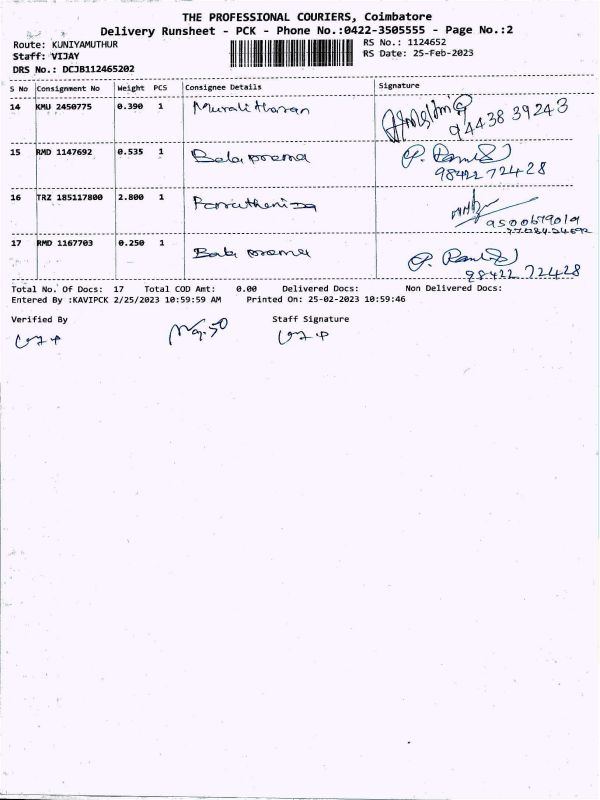 THE PROFESSIONAL COURIERS, Coimbatore
Delivery Runsheet - PCK - Phone No.:0422-3505555 - Page No.:2
Route: KUNIYAMUTHUR
Staff: VIJAY
DRS No.: DCJB112465202
RS No.: 1124652
RS Date: 25-Feb-2023
S No Consignment No Weight PCS Consignee Details Signature
14 KMU 2450775 0.390 1 Muralitharan
94438 39243
15 RMD 1147692 0.535 1 Bala prema
98422 72428
16 TRZ 185117800 2.800 1
9500679019
17 RMD 1167703 0.250 1 Bala prema
98422 72428
Total No. Of Docs: 17 Total COD Amt: 0.00 Delivered Docs: Non Delivered Docs:
Entered By :KAVIPCK 2/25/2023 10:59:59 AM Printed On: 25-02-2023 10:59:46
Verified By Staff Signature